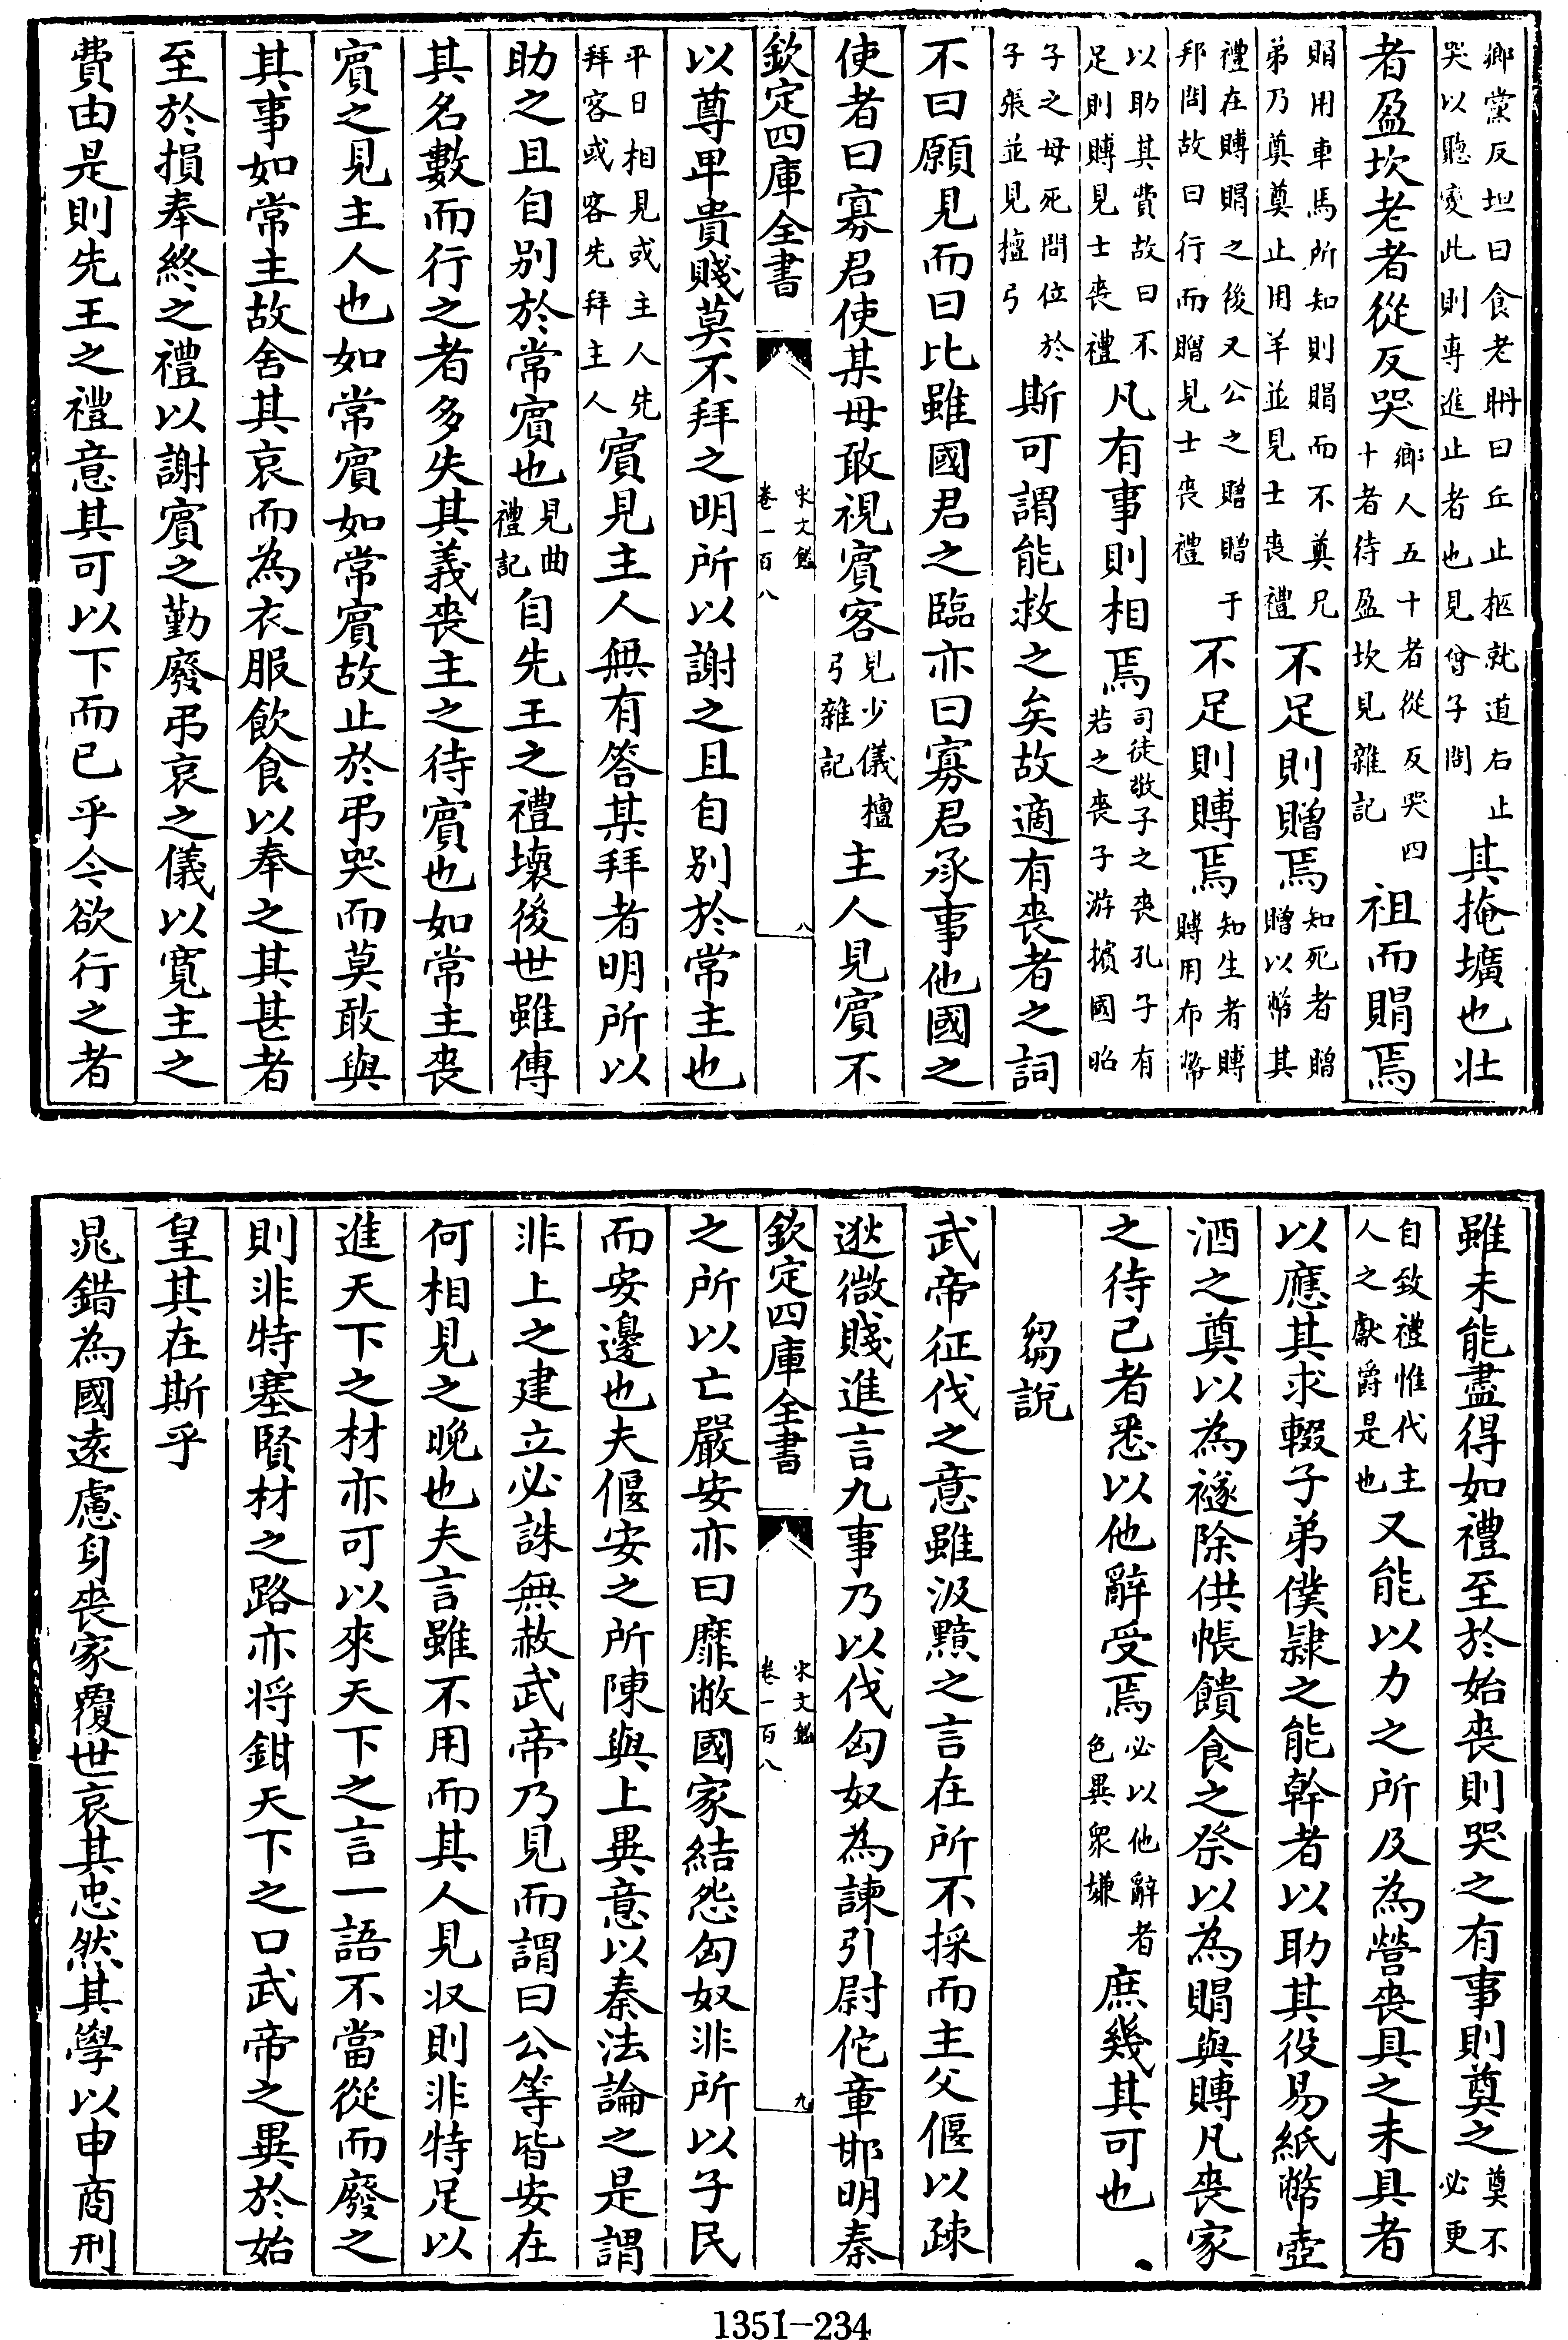 鄉黨反坦曰食老冊曰丘止柩就道右止
哭以聽變此則專進止者也見曾子問
其掩壙也壮
者盈坎老者從反哭
鄉人五十者從反哭四
十者待盈坎見雜記
祖而賵焉
賵用車馬所知則賵而不奠兄
弟乃奠奠止用羊並見士喪禮
不足則贈焉
知死者贈
贈以幣其
禮在賻賵之後又公之贈贈于
邦問故曰行而贈見士喪禮
不足則賻焉
知生者賻
賻用布幣
以助其費故曰不
足則賻見士喪禮
凡有事則相焉
司徒敬子之喪孔子有
若之喪子游擯國昭
子之母死問位於
子張並見檀弓
斯可謂能救之矣故適有喪者之詞
不曰願見而曰比雖國君之臨亦曰寡君承事他國之
使者曰寡君使某毋敢視賓客
見少儀檀
弓雜記
主人見賓不
欽定四庫全書
宋文鑑
卷一百八
八
以尊卑貴賤莫不拜之明所以謝之且自别於常主也
平日相見或主人先
拜客或客先拜主人
賓見主人無有答某拜者明所以
助之且自别於常賓也
見曲
禮記
自先王之禮壞後世雖傳
其名數而行之者多失其義喪主之待賓也如常主喪
賓之見主人也如常賓如常賓故止於弔哭而莫敢與
其事如常主故舍其哀而為衣服飲食以奉之其甚者
至於損奉終之禮以謝賓之勤廢弔哀之儀以寬主之
費由是則先王之禮意其可以下而已乎今欲行之者
雖未能盡得如禮至於始喪則哭之有事則奠之
奠不
必更
自致禮惟代主
人之獻爵是也
又能以力之所及為營喪具之未具者
以應其求輟子弟僕隸之能幹者以助其役易紙幣壺
酒之奠以為襚除供帳饋食之祭以為賵與賻凡喪家
之待己者悉以他辭受焉
必以他辭者
色異衆嫌
庶幾其可也
芻說
武帝征伐之意雖汲黯之言在所不採而主父偃以疎
逖微賤進言九事乃以伐匈奴為諫引尉佗章邯明秦
欽定四庫全書
宋文鑑
卷一百八
九
之所以亡嚴安亦曰靡敝國家結怨匈奴非所以子民
而安邊也夫偃安之所陳與上異意以秦法論之是謂
非上之建立必誅無赦武帝乃見而謂曰公等皆安在
何相見之晚也夫言雖不用而其人見收則非特足以
進天下之材亦可以來天下之言一語不當從而廢之
則非特塞賢材之路亦将鉗天下之口武帝之異於始
皇其在斯乎
晁錯為國遠慮身喪家覆世哀其忠然其學以申商刑
1351-234